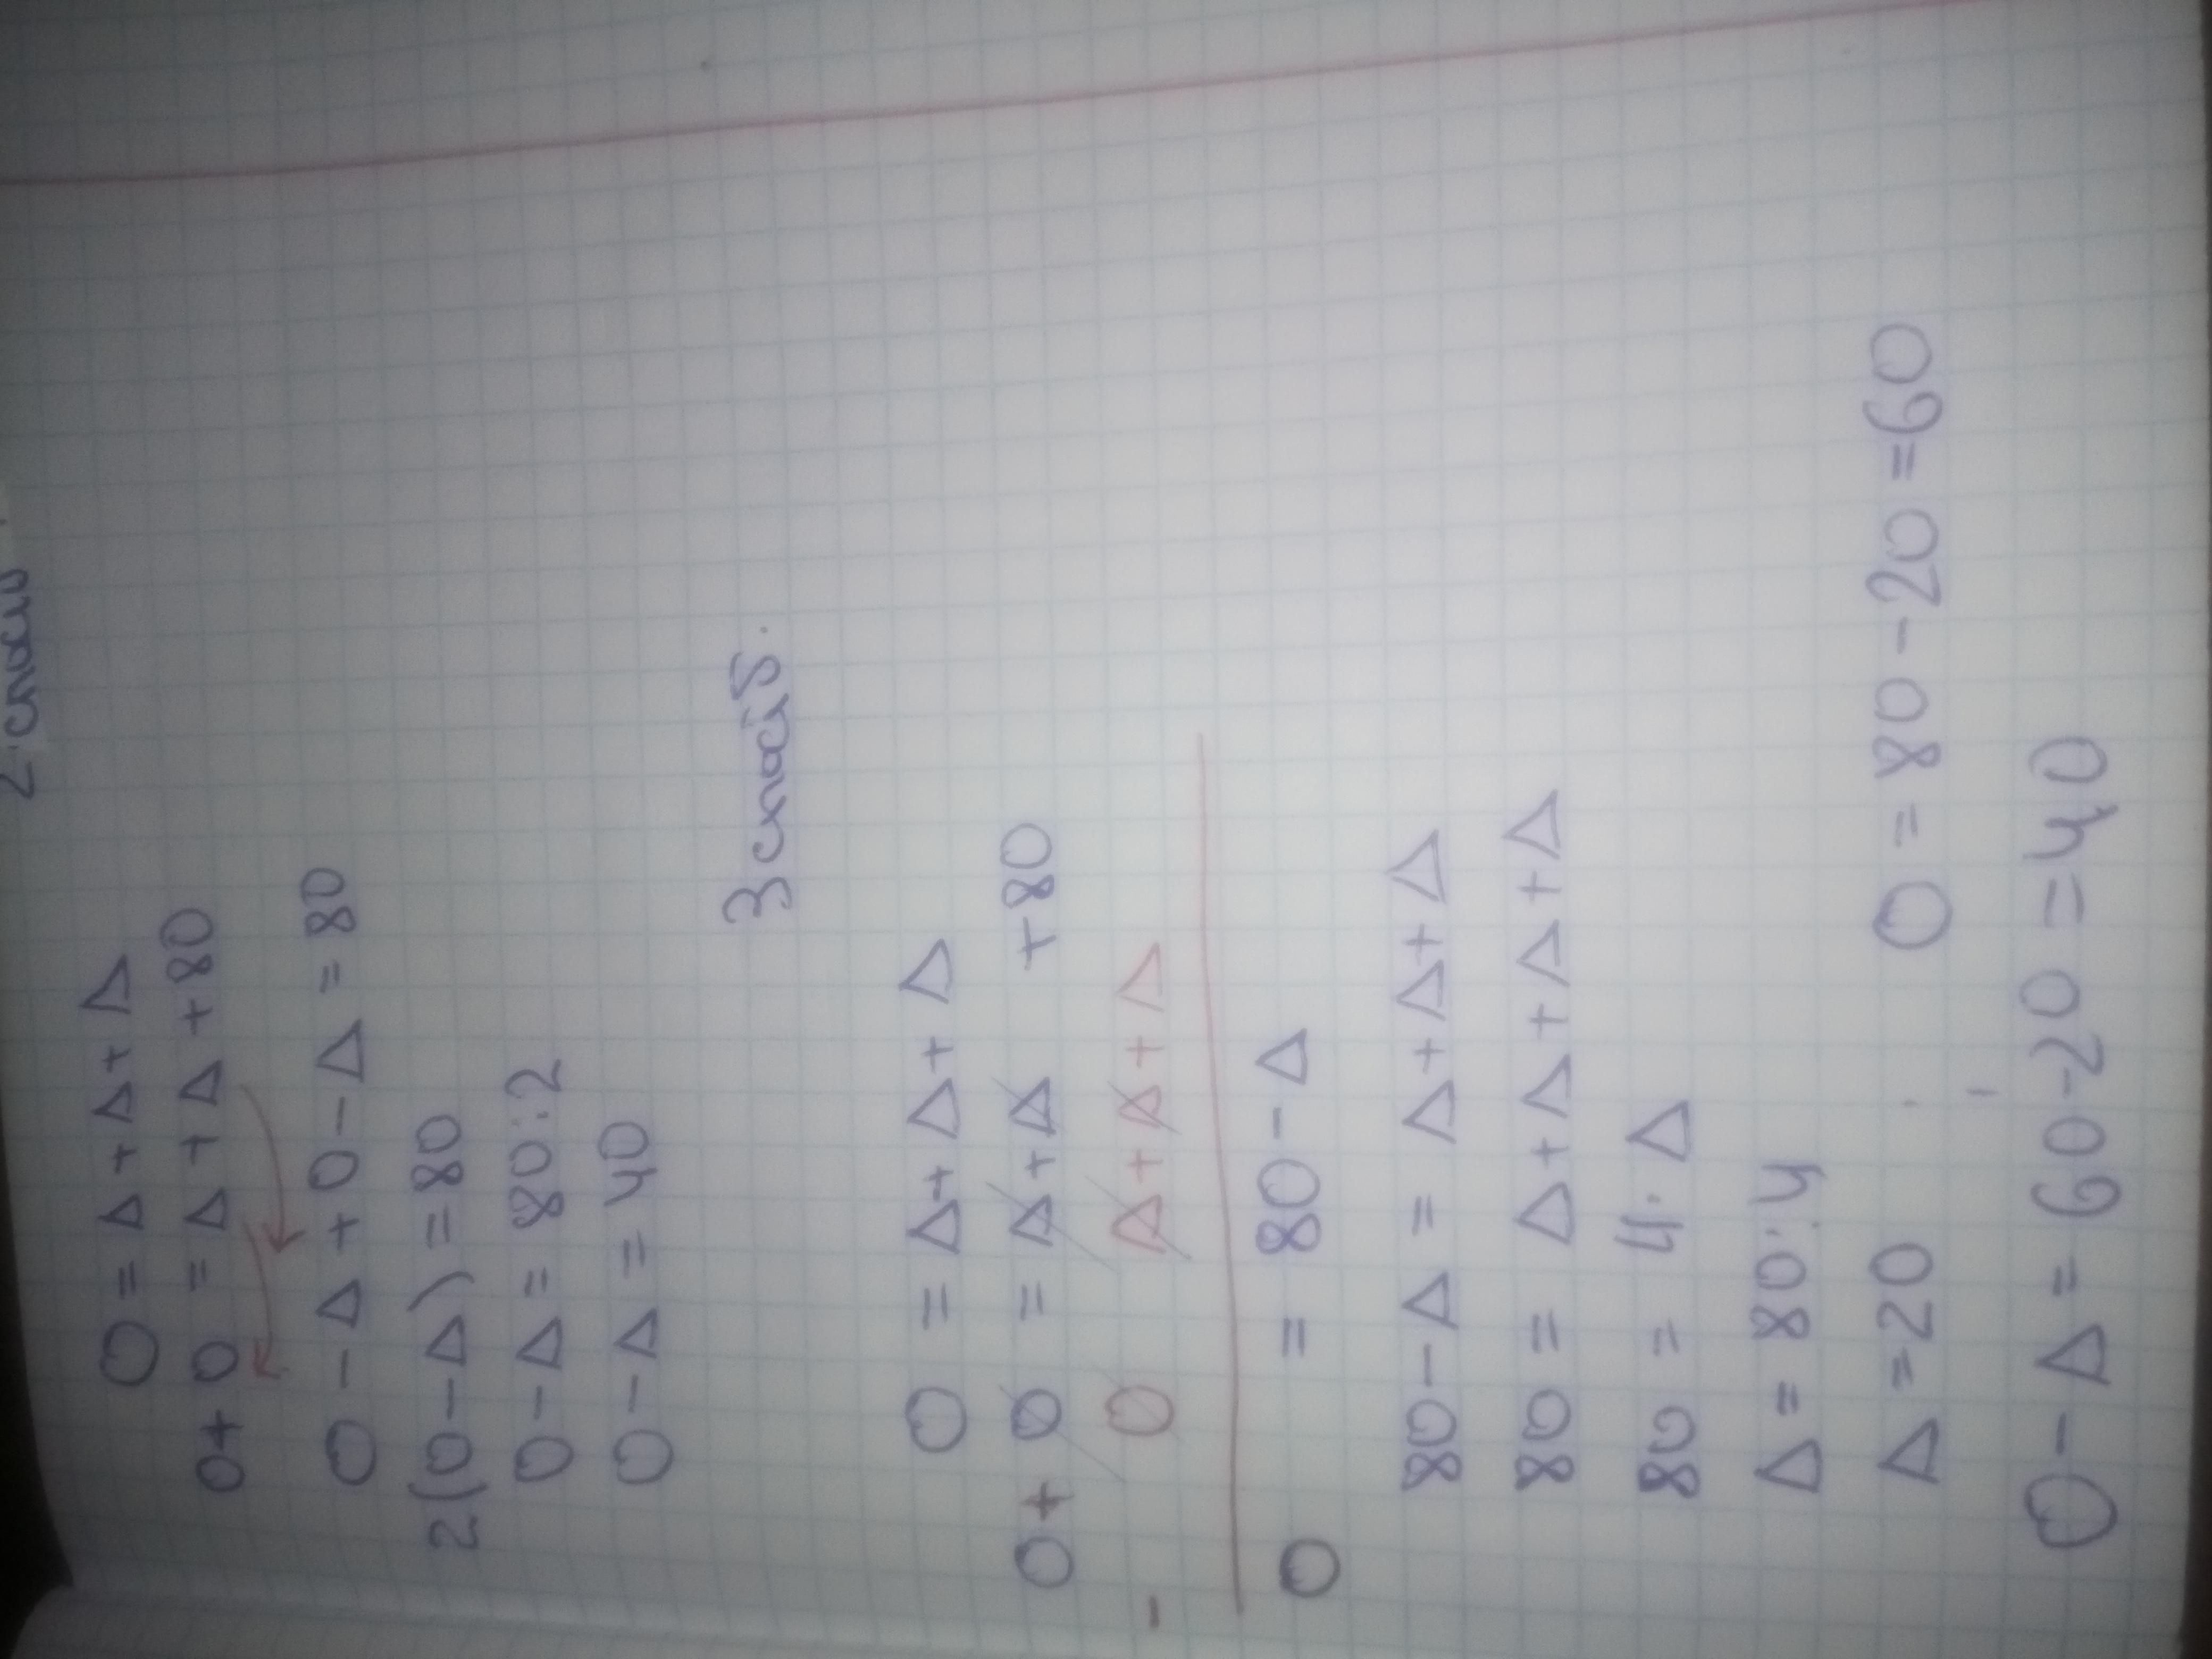 2 спосіб
O = Δ + Δ + Δ
O + O = Δ + Δ + 80
O - Δ + O - Δ = 80
2(O - Δ) = 80
O - Δ = 80:2
O - Δ = 40
3 спосіб.
O = Δ + Δ + Δ
O + O = Δ + Δ + 80
- O Δ + Δ + Δ
O = 80 - Δ
80 - Δ = Δ + Δ + Δ
80 = Δ + Δ + Δ + Δ
80 = 4 · Δ
Δ = 80:4
Δ = 20 O = 80 - 20 = 60
O - Δ = 60 - 20 = 40